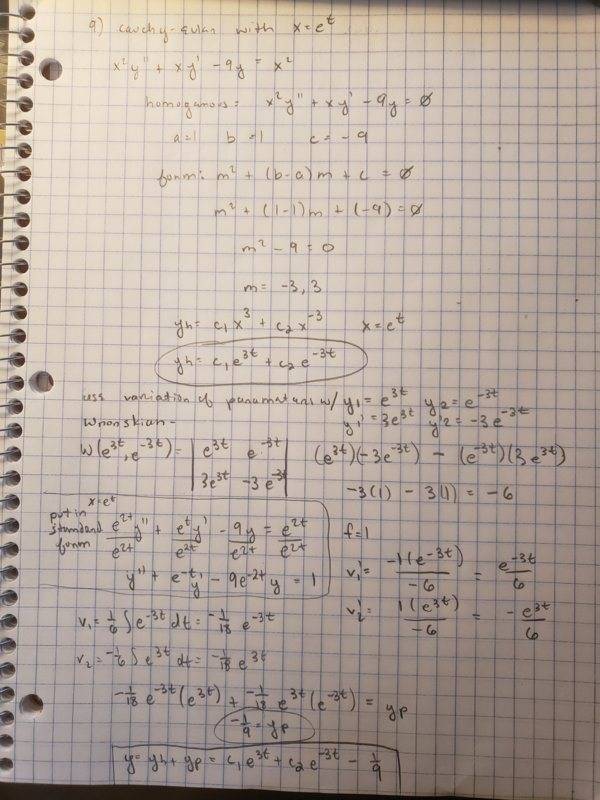 9) cauchy-eular with x=e^t
x²y" + xy' - 9y = x²
homoganous: x²y" + xy' - 9y = 0
a=1 b=1 c=-9
form: m² + (b-a)m + c = 0
m² + (1-1)m + (-9) = 0
m² - 9 = 0
m = -3, 3
yh = c₁x³ + c₂x⁻³ x=e^t
yh = c₁e^3t + c₂e^-3t
use variation of paramaters w/ y₁ = e^3t y₂ = e^-3t
Wronskian - y₁' = 3e^3t y'₂ = -3e^-3t
W(e^3t, e^-3t) = | e^3t e^-3t | (e^3t)(-3e^-3t) - (e^-3t)(3e^3t)
| 3e^3t -3e^-3t | -3(1) - 3(1) = -6
x=e^t
put in standard form e^2t/e^2t y" + e^t/e^2t y' - 9y/e^2t = e^2t/e^2t f=1
y" + e^-t y' - 9e^-2t y = 1
v₁' = -1(e^-3t)/-6 = e^-3t/6
v₂' = 1(e^3t)/-6 = -e^3t/6
v₁ = 1/6 ∫ e^-3t dt = -1/18 e^-3t
v₂ = -1/6 ∫ e^3t dt = -1/18 e^3t
-1/18 e^-3t (e^3t) + -1/18 e^3t (e^-3t) = yp
-1/9 = yp
y = yh + yp = c₁e^3t + c₂e^-3t - 1/9